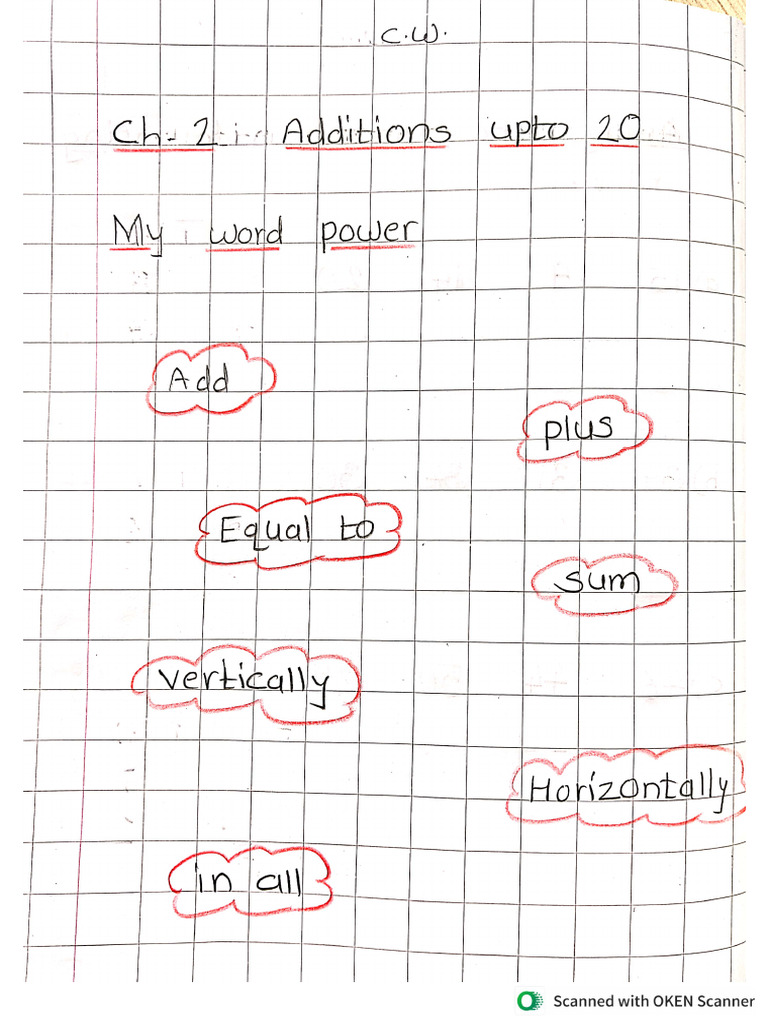 C.W.
Ch-2:- Additions upto 20
My word power
Add
plus
Equal to
sum
vertically
Horizontally
in all
Scanned with OKEN Scanner